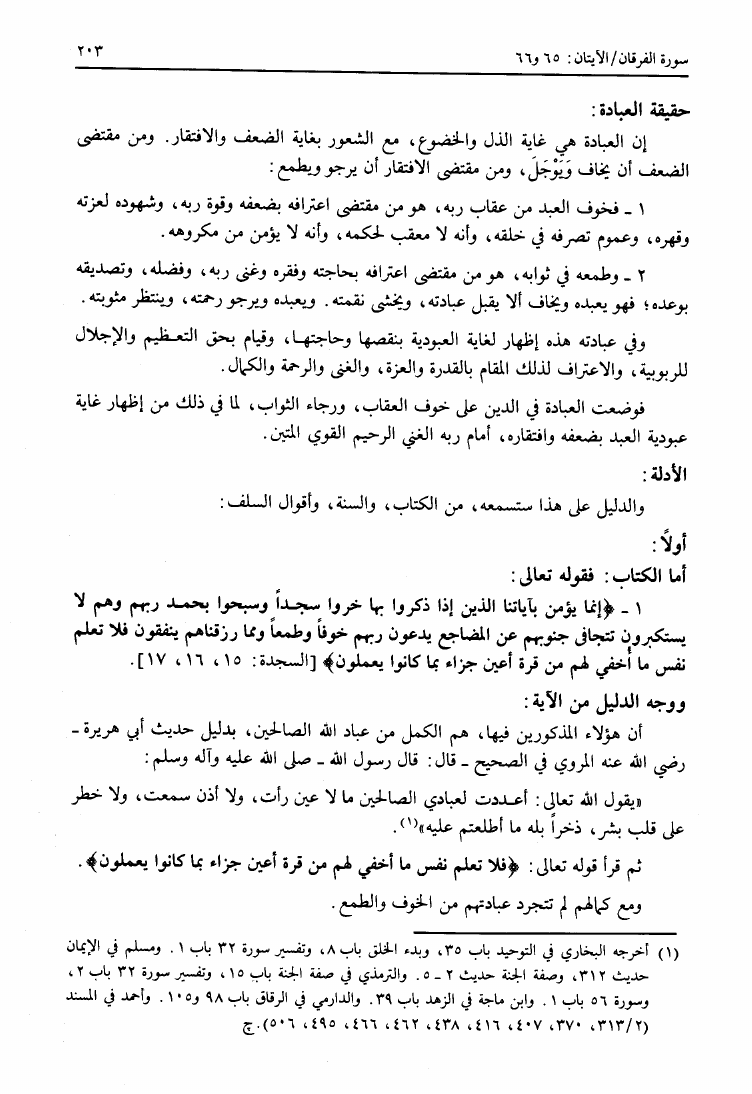 سورة الفرقان/الآيتان: ٦٥ و٦٦
٢٠٣
حقيقة العبادة:
إن العبادة هي غاية الذل والخضوع، مع الشعور بغاية الضعف والافتقار. ومن مقتضى
الضعف أن يخاف وَيَوْجَلَ، ومن مقتضى الافتقار أن يرجو ويطمع:
١ ـ فخوف العبد من عقاب ربه، هو من مقتضى اعترافه بضعفه وقوة ربه، وشهوده لعزته
وقهره، وعموم تصرفه في خلقه، وأنه لا معقب لحكمه، وأنه لا يؤمن من مكروهه.
٢ ـ وطمعه في ثوابه، هو من مقتضى اعترافه بحاجته وفقره وغنى ربه، وفضله، وتصديقه
بوعده؛ فهو يعبده ويخاف ألا يقبل عبادته، ويخشى نقمته. ويعبده ويرجو رحمته، وينتظر مثوبته.
وفي عبادته هذه إظهار لغاية العبودية بنقصها وحاجتهـا، وقيام بحق التعـظيم والإجلال
للربوبية، والاعتراف لذلك المقام بالقدرة والعزة، والغنى والرحمة والكمال.
فوضعت العبادة في الدين على خوف العقاب، ورجاء الثواب، لما في ذلك من إظهار غاية
عبودية العبد بضعفه وافتقاره، أمام ربه الغني الرحيم القوي المتين.
الأدلة:
والدليل على هذا ستسمعه، من الكتاب، والسنة، وأقوال السلف:
أولاً:
أما الكتاب: فقوله تعالى:
١ ـ ﴿إنما يؤمن بآياتنا الذين إذا ذكروا بها خروا سجـداً وسبحوا بحمـد ربهم وهم لا
يستكبرون تتجافى جنوبهم عن المضاجع يدعون ربهم خوفاً وطمعاً ومما رزقناهم ينفقون فلا تعلم
نفس ما أُخفي لهم من قرة أعين جزاء بما كانوا يعملون﴾ [السجدة: ١٥، ١٦، ١٧].
ووجه الدليل من الآية:
أن هؤلاء المذكورين فيها، هم الكمل من عباد الله الصالحين، بدليل حديث أبي هريرة ـ
رضي الله عنه المروي في الصحيح ـ قال: قال رسول الله ـ صلى الله عليه وآله وسلم:
«يقول الله تعالى: أعـددت لعبادي الصالحين ما لا عين رأت، ولا أذن سمعت، ولا خطر
على قلب بشر، ذخراً بله ما أطلعتم عليه»(١).
ثم قرأ قوله تعالى: ﴿فلا تعلم نفس ما أخفي لهم من قرة أعين جزاء بما كانوا يعملون﴾.
ومع كمالهم لم تتجرد عبادتهم من الخوف والطمع.
(١) أخرجه البخاري في التوحيد باب ٣٥، وبدء الخلق باب ٨، وتفسير سورة ٣٢ باب ١. ومسلم في الإيمان
حديث ٣١٢، وصفة الجنة حديث ٢ ـ ٥. والترمذي في صفة الجنة باب ١٥، وتفسير سورة ٣٢ باب ٢،
وسورة ٥٦ باب ١. وابن ماجة في الزهد باب ٣٩. والدارمي في الرقاق باب ٩٨ و١٠٥. وأحمد في المسند
(٣١٣/٢، ٣٧٠، ٤٠٧، ٤١٦، ٤٣٨، ٤٦٢، ٤٦٦، ٤٩٥، ٥٠٦). ج